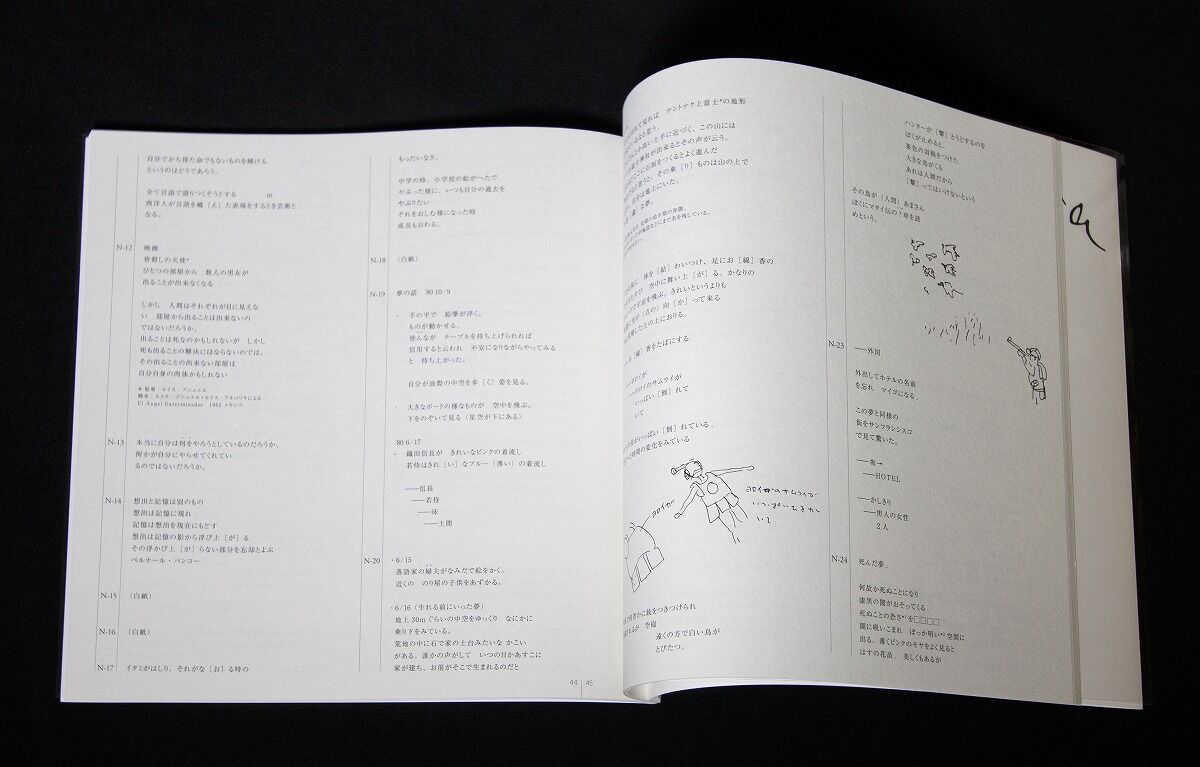 自分でかち得た命でもないものを賭ける
というのほどうであろう。
全て言語で語りつくそうとする
m
西洋人が言語を越［え］た表現をするとき芸術と
なる。
N-12 映画
皆殺しの天使*
ひとつの部屋から 数人の男女が
出ることが出来なくなる
しかし 人間はそれぞれが目に見えな
い 部屋から出ることは出来ないの
ではないだろうか。
出ることは死なのかもしれないが しかし
死も出ることの解決にはならないのでは、
その出ることの出来ない部屋は
自分自身の肉体かもしれない
* 監督：ルイス・ブニュエル
脚本：ルイス・ブニュエル+ルイス・アルコリサによる
El Angel Exterminador 1962 メキシコ
N-13 本当に自分は何をやろうとしているのだろうか、
何かが自分にやらせてくれてい
るのではないだろうか。
N-14 想出と記憶は別のもの
想出は記憶に現れ
記憶は想出を現在にもどす
想出は記憶の影から浮び上［が］る
その浮かび上［が］らない部分を忘却とよぶ
ベルナール・パンコー
N-15 （白紙）
N-16 （白紙）
N-17 イタミがはしり、それがな［お］る時の
もったいなさ。
中学の時、小学校の絵がへたで
やぶった様に、いつも自分の過去を
やぶりたい
それをおしむ様になった時
成長もおわる。
N-18 （白紙）
N-19 夢の話 '80 10/9
・ 手の平で 鉛筆が浮く。
ものが動かせる。
皆んなが テーブルを持ち上げられれば
信用すると云われ 不安になりながらやってみる
と 待ち上がった。
自分が波際の中空を歩［く］姿を見る。
・ 大きなボートの様なものが 空中を飛ぶ。
下をのぞいて見る（星空が下にある）
'80 6/17
・ 織田信長が きれいなピンクの着流し
若侍はきれ［い］なブルー（薄い）の着流し
──信長
──若侍
──床
──土間
N-20 ・6/15
落語家の婦夫がなみだで絵をかく。
近くの のり屋の子供をあずかる。
・6/16（生れる前にいった夢）
地上30mぐらいの中空をゆっくり なにかに
乗り下をみている。
荒地の中に石で家の土台みたいな かこい
がある。誰かの声がして いつの日かあすこに
家が建ち、お前がそこで生まれるのだと
44 45
見れば ナントナク上富士*の地形
と思う
上手に近づく、この山には
神社が出来るとその声が云う。
とお気をつけるとよく遊んだ
と思うと、その乗［り］ものは山の上で
は地上にいた。
と夢。
体を［結］わいつけ、足にお［線］香の
空中に舞い上［が］る。かなりの
を飛ぶ。きれいというよりも
（点の）向［か］って来る
した土の上におりる。
香をたばにする
イのサムライが
いっぱい［倒］れて
いて
がいっぱい［倒］れている、
間の変化をみている
ヨロイカブ
ヨロイ姿のサムライが
いっぱいたおれて
いて
何者かに銃をつきつけられ
るが 李庭
遠くの方で白い鳥が
とびたつ。
ハンターが［撃］とうとするのを
ぼくが止めると、
茶色の羽根をつけた
大きな鳥がくる
あれは人間だから
［撃］ってはいけないという
その鳥が［人間］あまさん
ぼくにマタイ伝の？章を読
めという。
N-23 ──外国
外出してホテルの名前
を忘れ マイゴになる
この夢と同様の
街をサンフランシスコ
で見て驚いた。
──坂→
──HOTEL
──かしきり
──黒人の女性
2人
N-24 死んだ夢。
何故か死ぬことになり
漆黒の闇がおそってくる
死ぬことの恐さ*¹を□□□□
闇に吸いこまれ ぽっか明い*²空間に
出る。薄くピンクのモヤをよく見ると
はすの花畠、美しくもあるが